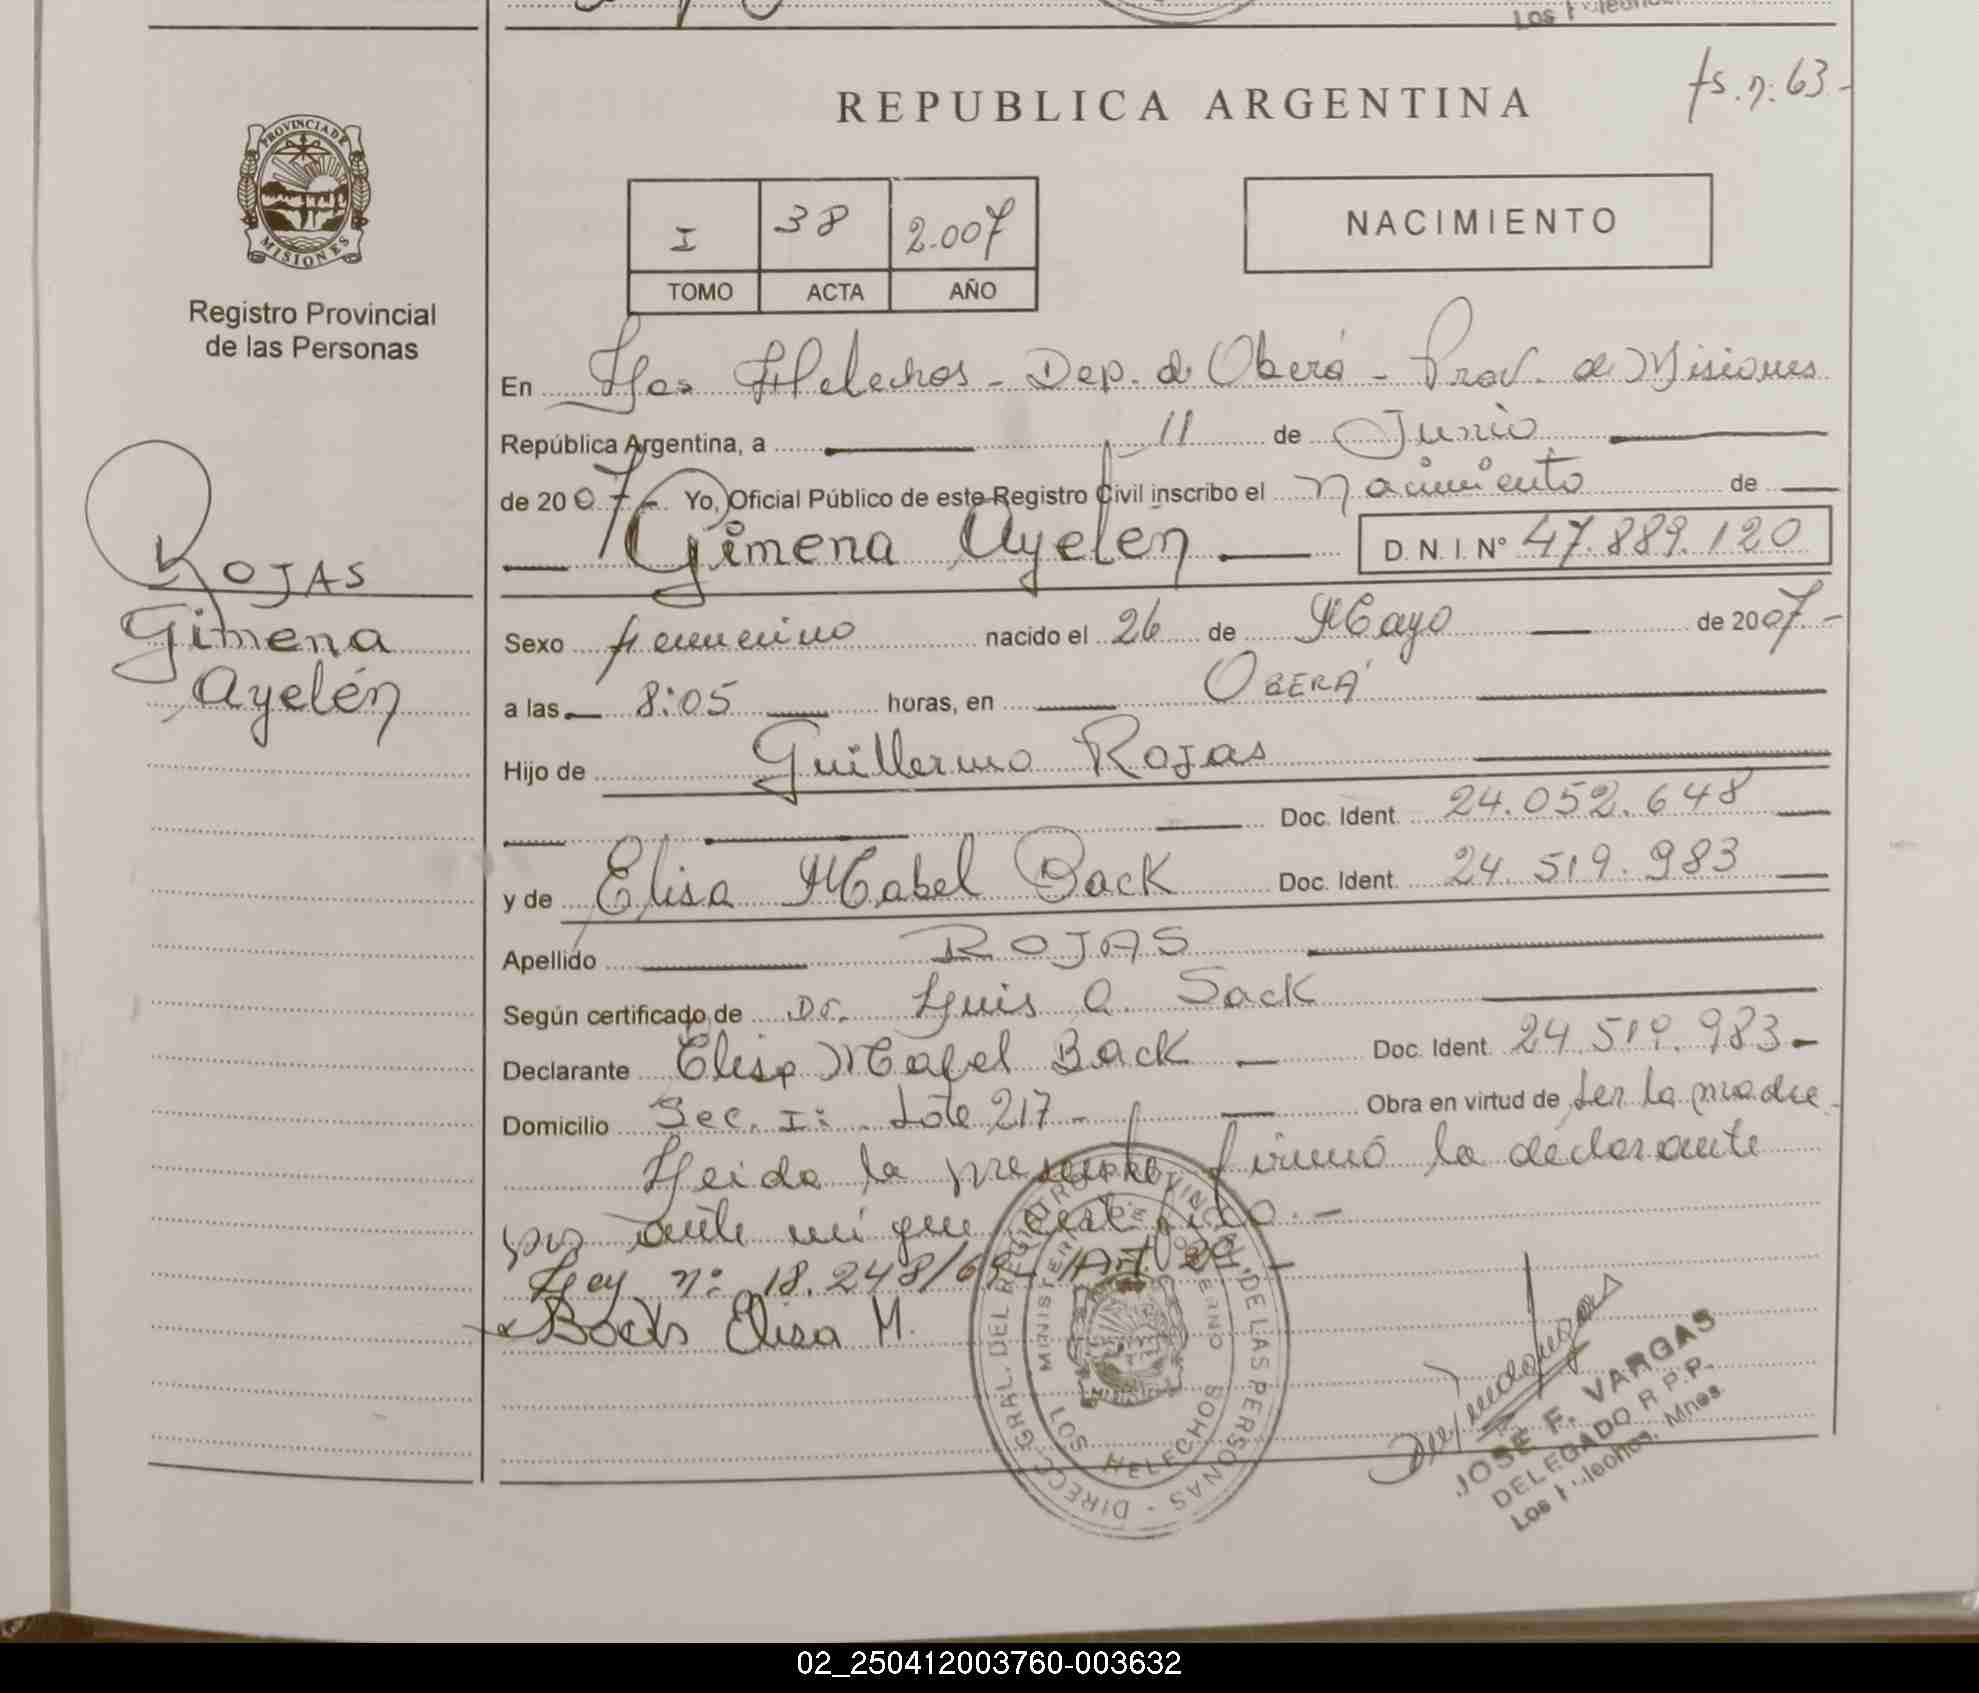 REPUBLICA ARGENTINA
fs. n: 63.-
PROVINCIA DE MISIONES
Registro Provincial
de las Personas
I 38 2.007
TOMO ACTA AÑO
NACIMIENTO
ROJAS
Gimena
Ayelén
En Los Helechos - Dep. de Oberá - Prov. de Misiones
República Argentina, a 11 de Junio
de 2007.- Yo, Oficial Público de este Registro Civil inscribo el Nacimiento de
Gimena Ayelén D.N.I. Nº 47.889.120
Sexo femenino nacido el 26 de Mayo de 2007.-
a las 8:05 horas, en OBERÁ
Hijo de Guillermo Rojas
Doc. Ident. 24.052.648
y de Elisa Mabel Back Doc. Ident. 24.519.983
Apellido ROJAS
Según certificado de Dr. Luis A. Sack
Declarante Elisa Mabel Back Doc. Ident. 24.519.983-
Domicilio Sec. I: Lote 217- Obra en virtud de ser la madre.
Leida la presente, firmó la declarante
por ante mi que certifico.-
Ley n: 18.248/69- Art.
Elisa M.
DIRECC. GRAL. DEL REGISTRO PROVINCIAL DE LAS PERSONAS -
MINISTERIO DE GOBIERNO
LOS HELECHOS
JOSE F. VARGAS
DELEGADO R.P.P.
Los Helechos, Mnes.
02_250412003760-003632